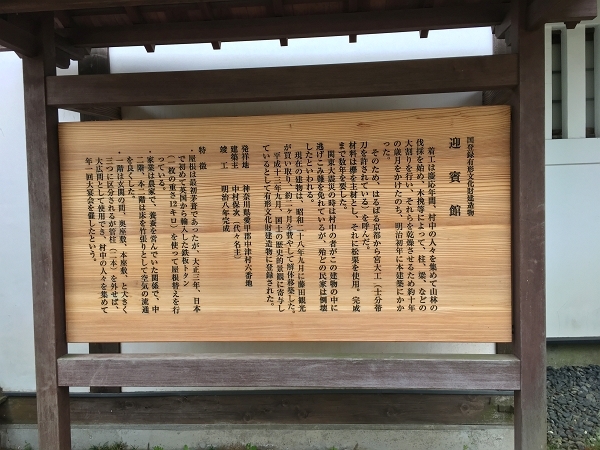 国登録有形文化財建造物
迎賓館
着工は慶応年間、村中の人々を集めて山林の
伐採を始め、木挽等によって、柱、梁、などの
大割りを行い、それらを乾燥させるため約十年
の歳月をかけたのち、明治初年に本建築にかか
った。
そのためは、はるばる京都から宮大工（士分帯
刀を許されている）を呼んだ。
材料は欅を主材とし、それに松栗を使用。完成
まで数年を要した。
関東大震災の時は村中の者がこの建物の中に
逃げこみ難を免れているが、殆どの民家は倒壊
したといわれる。
現在の建物は、昭和二十八年九月に藤田観光
が買い取り、約二ヶ月を費やして解体移築した。
平成十三年九月、国土の歴史的景観に寄与し
ているとして有形文化財建造物に登録された。
発祥地　神奈川県愛甲郡中津村六番地
建築主　中村孫次（代々名主）
竣工　明治八年完成
特徴
・屋根は最初茅葺であったが、大正三年、日本
で初めて英国から輸入した鉄板トタン
（一枚の重さ１２キロ）を使って屋根替えを行
っている。
・家業は農家で、養蚕を営んでいた関係で、中
二階、本二階は床を竹張りとして空気の流通
を良くした。
・一階は玄関の間、奥座敷、本座敷、と大きく
三つに区分されるが管柱（二本）を外せば、
大広間として使用でき、村中の人々を集めて
年一回大宴会を催したという。